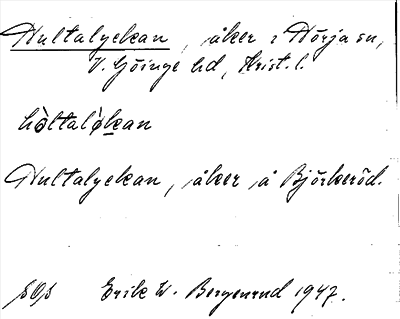 Hultalyckan, åker i Hörja sn,
V. Göinge hd, Krist. l.
hòltalỳkan
Hultalyckan, åker å Björkeröd.
SOS Erik W. Bergenrud 1947.